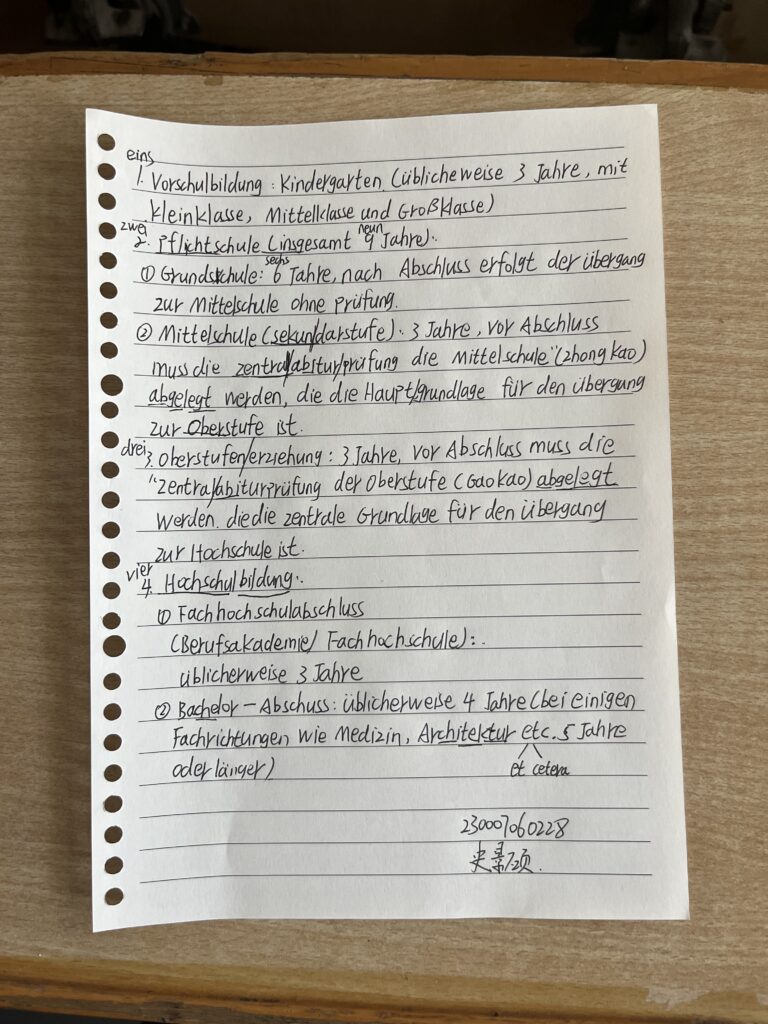 eins
1. Vorschulbildung: Kindergarten (üblicheweise 3 Jahre, mit
Kleinklasse, Mittelklasse und Großklasse)
zwei neun
2. Pflichtschule (insgesamt 9 Jahre):
sechs
① Grundschule: 6 Jahre, nach Abschluss erfolgt der übergang
zur Mittelschule ohne prüfung.
② Mittelschule (sekun/darstufe): 3 Jahre, vor Abschluss
muss die zentral/abitur/prüfung die Mittelschule" (zhong kao)
abgelegt werden, die die Haupt/grundlage für den übergang
zur Oberstufe ist.
drei
3. Oberstufen/erziehung: 3 Jahre, vor Abschluss muss die
"Zentral/abiturprüfung der Oberstufe (Gao Kao) abgelegt
werden. die die zentrale Grundlage für den Übergang
zur Hochschule ist.
vier
4. Hochschulbildung:.
① Fachhochschulabschluss
(Berufsakademie/ Fachhochschule):.
üblicherweise 3 Jahre
② Bachelor - Abschuss: üblicherweise 4 Jahre (bei einigen
Fachrichtungen wie Medizin, Architektur etc. 5 Jahre
oder länger)
et cetera
230007060228
史景